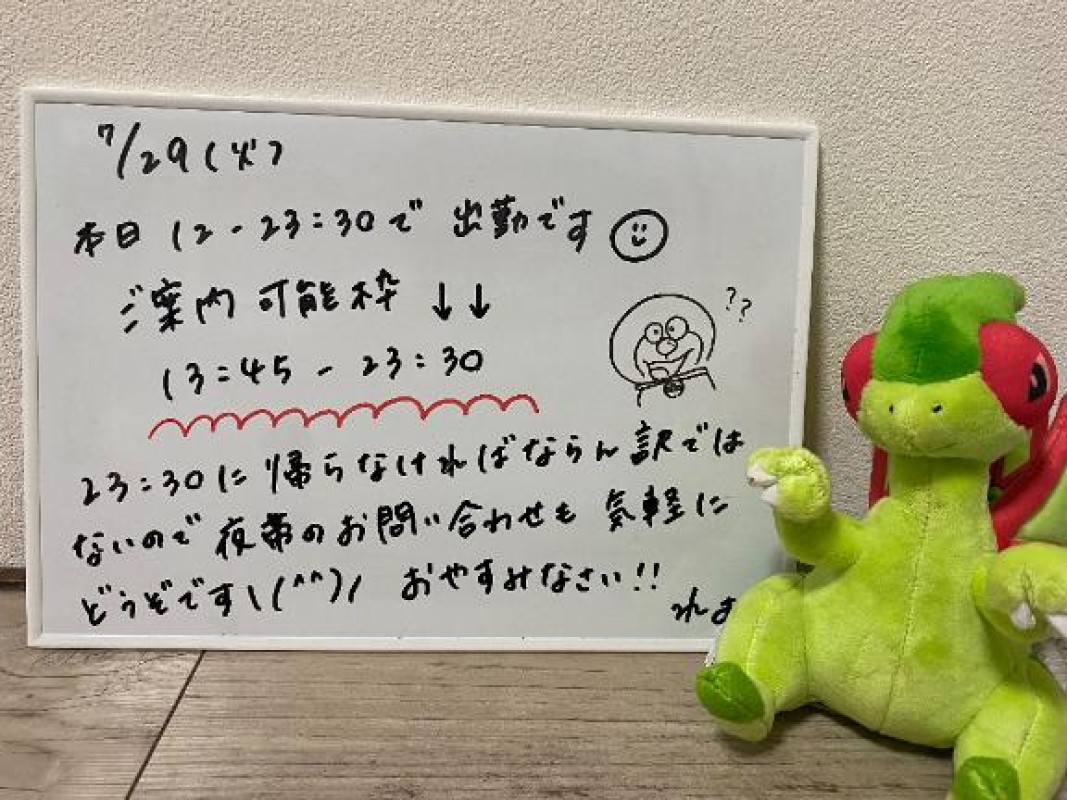 7/29(火)
本日 12-23:30で 出勤です
ご案内 可能枠 ↓↓
??
13:45 - 23:30
23:30に帰らなければならん訳では
ないので夜帯のお問い合わせも 気軽に
どうぞです\(^^)/ おやすみなさい!!